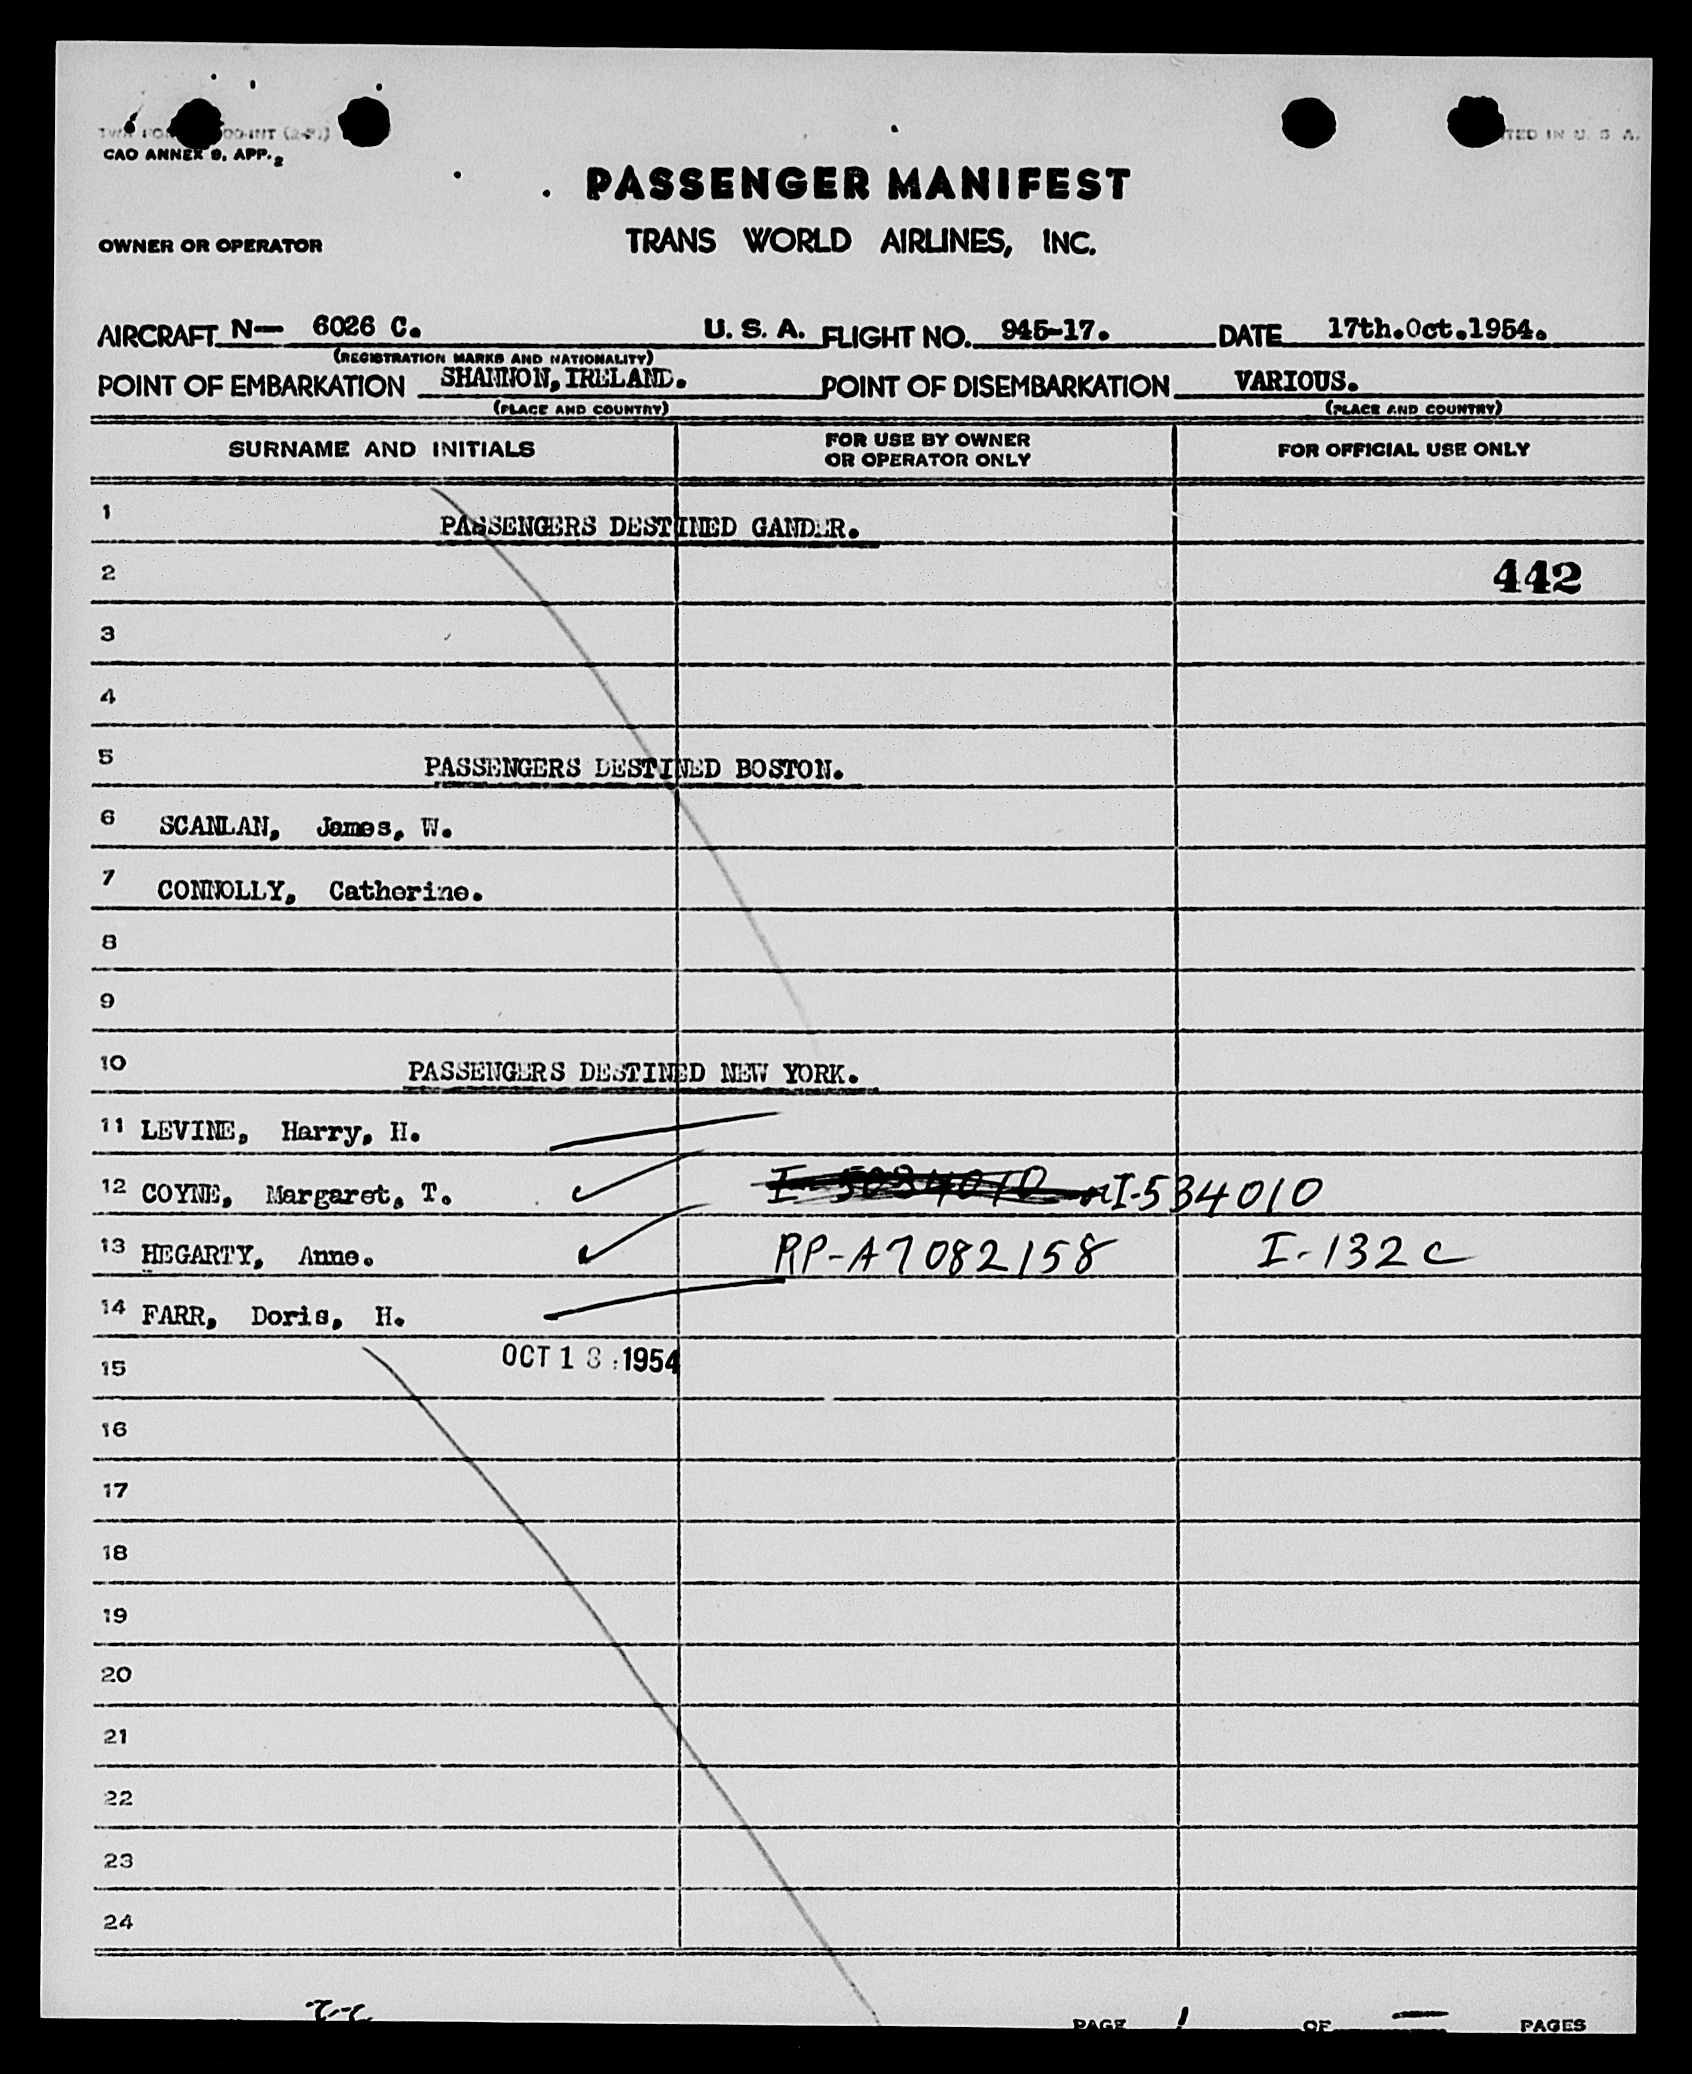 CAO ANNEX 9, APP. 2
PASSENGER MANIFEST
OWNER OR OPERATOR TRANS WORLD AIRLINES, INC.
AIRCRAFT N— 6026 C. U. S. A. FLIGHT NO. 945-17. DATE 17th.Oct.1954.
(REGISTRATION MARKS AND NATIONALITY)
POINT OF EMBARKATION SHANNON, IRELAND. POINT OF DISEMBARKATION VARIOUS.
(PLACE AND COUNTRY) (PLACE AND COUNTRY)
SURNAME AND INITIALS FOR USE BY OWNER OR OPERATOR ONLY FOR OFFICIAL USE ONLY
1 PASSENGERS DESTINED GANDER.
2 442
3
4
5 PASSENGERS DESTINED BOSTON.
6 SCANLAN, James, W.
7 CONNOLLY, Catherine.
8
9
10 PASSENGERS DESTINED NEW YORK.
11 LEVINE, Harry, H.
12 COYNE, Margaret, T. I-534010
13 HEGARTY, Anne. RP-A7082158 I-132C
14 FARR, Doris, H.
15 OCT 18 1954
16
17
18
19
20
21
22
23
24
PAGE 1 OF — PAGES